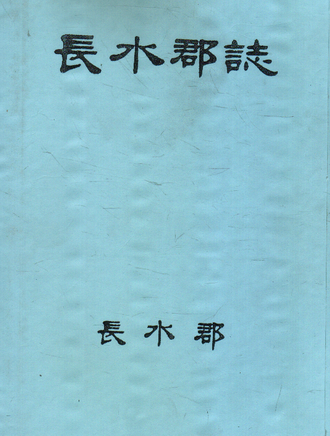 長水郡誌
長水郡